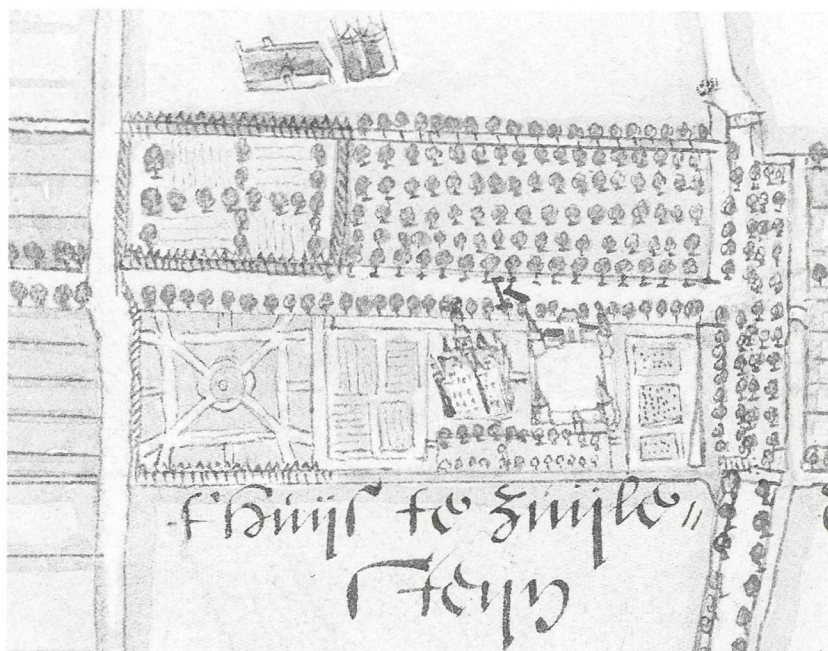 K
t'huijs te zuijle〃
steijn